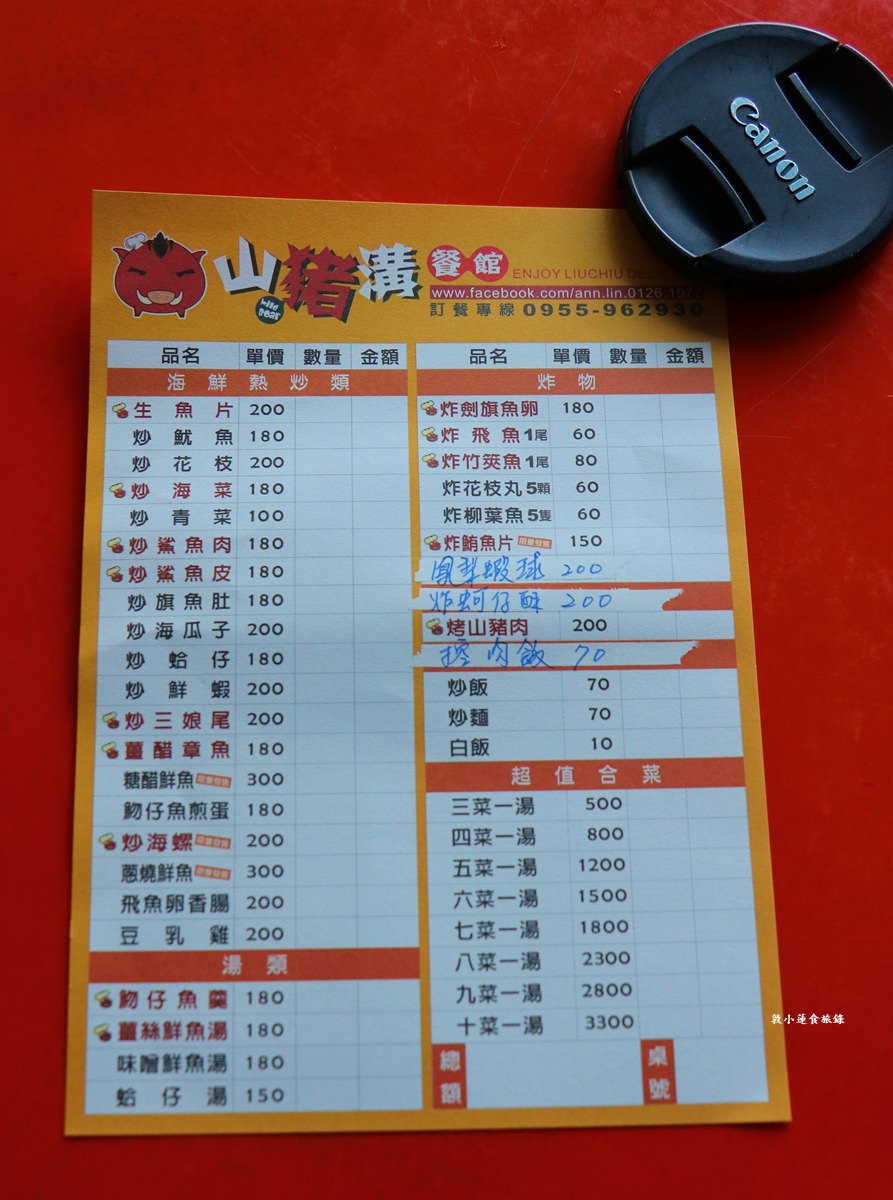 Canon
山豬溝 餐館
wild boar
ENJOY LIUCHIU
www.facebook.com/ann.lin.0126.1977
訂餐專線 0955-962930
品名 單價 數量 金額
海鮮熱炒類
生魚片 200
炒魷魚 180
炒花枝 200
炒海菜 180
炒青菜 100
炒鯊魚肉 180
炒鯊魚皮 180
炒旗魚肚 180
炒海瓜子 200
炒蛤仔 180
炒鮮蝦 200
炒三娘尾 200
薑醋章魚 180
糖醋鮮魚 限量發售 300
魩仔魚煎蛋 180
炒海螺 限量發售 200
蔥燒鮮魚 限量發售 300
飛魚卵香腸 200
豆乳雞 200
湯類
魩仔魚羹 180
薑絲鮮魚湯 180
味噌鮮魚湯 180
蛤仔湯 150
品名 單價 數量 金額
炸物
炸劍旗魚卵 180
炸飛魚1尾 60
炸竹筴魚1尾 80
炸花枝丸5顆 60
炸柳葉魚5隻 60
炸鮪魚片 限量發售 150
鳳梨蝦球 200
炸蚵仔酥 200
烤山豬肉 200
控肉飯 70
炒飯 70
炒麵 70
白飯 10
超值合菜
三菜一湯 500
四菜一湯 800
五菜一湯 1200
六菜一湯 1500
七菜一湯 1800
八菜一湯 2300
九菜一湯 2800
十菜一湯 3300
總額 桌號
敦小蓮食旅錄